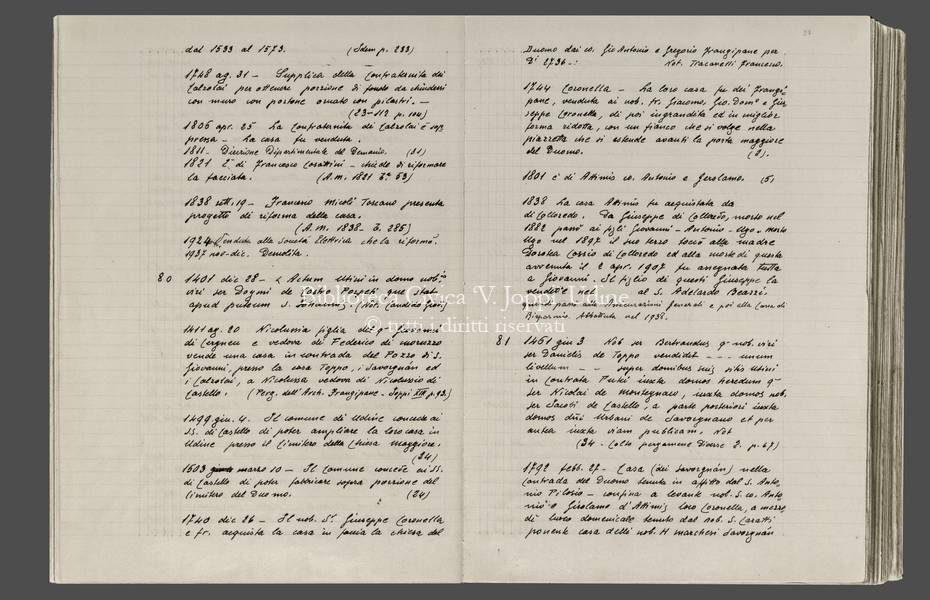 dal 1533 al 1573. (Idem p. 233)
1748 ag. 31 - Supplica della Confraternita dei
Calzolai per ottenere porzione di fondo da chiudersi
con muro con portone ornato con pilastri. -
(23-112 p. 104)
1806 apr. 25 La Confraternita di Calzolai è sop
pressa - La casa fu venduta.
1811 - Direzione Dipartimentale del Demanio. (21)
1821 È di Francesco Cosattini - chiede di riformare
la facciata. (A.m. 1821 53)
1838 sett. 19 - Francesco Micoli Toscano presenta
progetto di riforma della casa.
(A.M. 1838 - 285)
1924 Venduta alla Società Elettrica che la riformò.
1937 nov-dic. Demolita.
80 1401 dic 28 - Actum Utini in domo
viri ser que stat
apud puteum S. Johannis.
1411 ag. 20 Nicolussia figlia del q.m Giovanni
di Cergneu e vedova di Federico di Moruzzo
vende una casa in contrada del Pozzo di S.
Giovanni, presso la casa Toppo, i Savorgnan ed
i Calzolai, a Nicolussa vedova di Nicolussio di
Castello. (Perg. dell'Arch. Frangipane - Joppi XIII p. 93.)
1499 giu. 4. Il comune di Udine concede ai
SS. di Castello di poter ampliare la loro casa in
Udine presso il Cimitero della Chiesa maggiore.
(24)
1503 marzo 10 - Il Comune concede ai SS.
di Castello di poter fabbricare sopra porzione del
Cimitero del Duomo. (24)
1740 dic 26 - Il nob. Sr. Giuseppe Coronella
e fr. acquista la casa in faccia la chiesa del
Duomo dai co. Gio Antonio e Gregorio Frangipane per
D.i 2736 -: Not. Tracanelli Francesco.
1744 Coronella - La loro casa fu dei Frangi
pane, venduta ai nob. fr. Giacomo, Gio. Dom.o e Giu
seppe Coronella, di poi ingrandita ed in miglior
forma ridotta, con un fianco che si volge nella
piazzetta che si estende avanti la porta maggiore
del Duomo. (2).
1801 è di Attimis co. Antonio e Gerolamo. (5)
1838 La casa Attimis fu acquistata da
di Colloredo. Da Giuseppe di Colloredo, morto nel
1882 passò ai figli Giovanni - Antonio - Ugo. Morto
Ugo nel 1897 il suo terzo toccò alla madre
Dorotea Cossio di Colloredo ed alla morte di questa
avvenuta il 2 apr. 1907 fu assegnata tutta
a Giovanni. Il figlio di questi Giuseppe la
vendette nel al S. Adelardo Bearzi.
quindi passò alle Assicurazioni Generali e poi alla Cassa di
Risparmio. Abbattuta nel 1938.
81 1451 giu 3 Nob ser Bertrandus q.m nob. viri
ser Danielis de Toppo vendidit --- unum
livellum -- super domibus suis sitis Utini
in contrata Putei iuxta domos heredum q.m
ser Nicolai de Montegnaco, iuxta domos nob.
ser Jacobi de Castello, a parte posteriori iuxta
domos dni Urbani de Savorgnano et per
antea iuxta viam publicam. Not
(34 - Coll. pergamene Diverse 2. p. 67)
1792 febb. 27 - Casa (dei Savorgnan) nella
Contrada del Duomo tenuta in affitto dal S. Anto
nio Pilosio - confina a levante nob. S. co. Anto
nio e Girolamo d'Attimis loco Coronella, a mezzo
dì luoco domenicale tenuto dal nob. S. Caratti
ponente casa delli nob. H marchesi Savorgnan
Biblioteca Civica V. Joppi, Udine
© tutti i diritti riservati